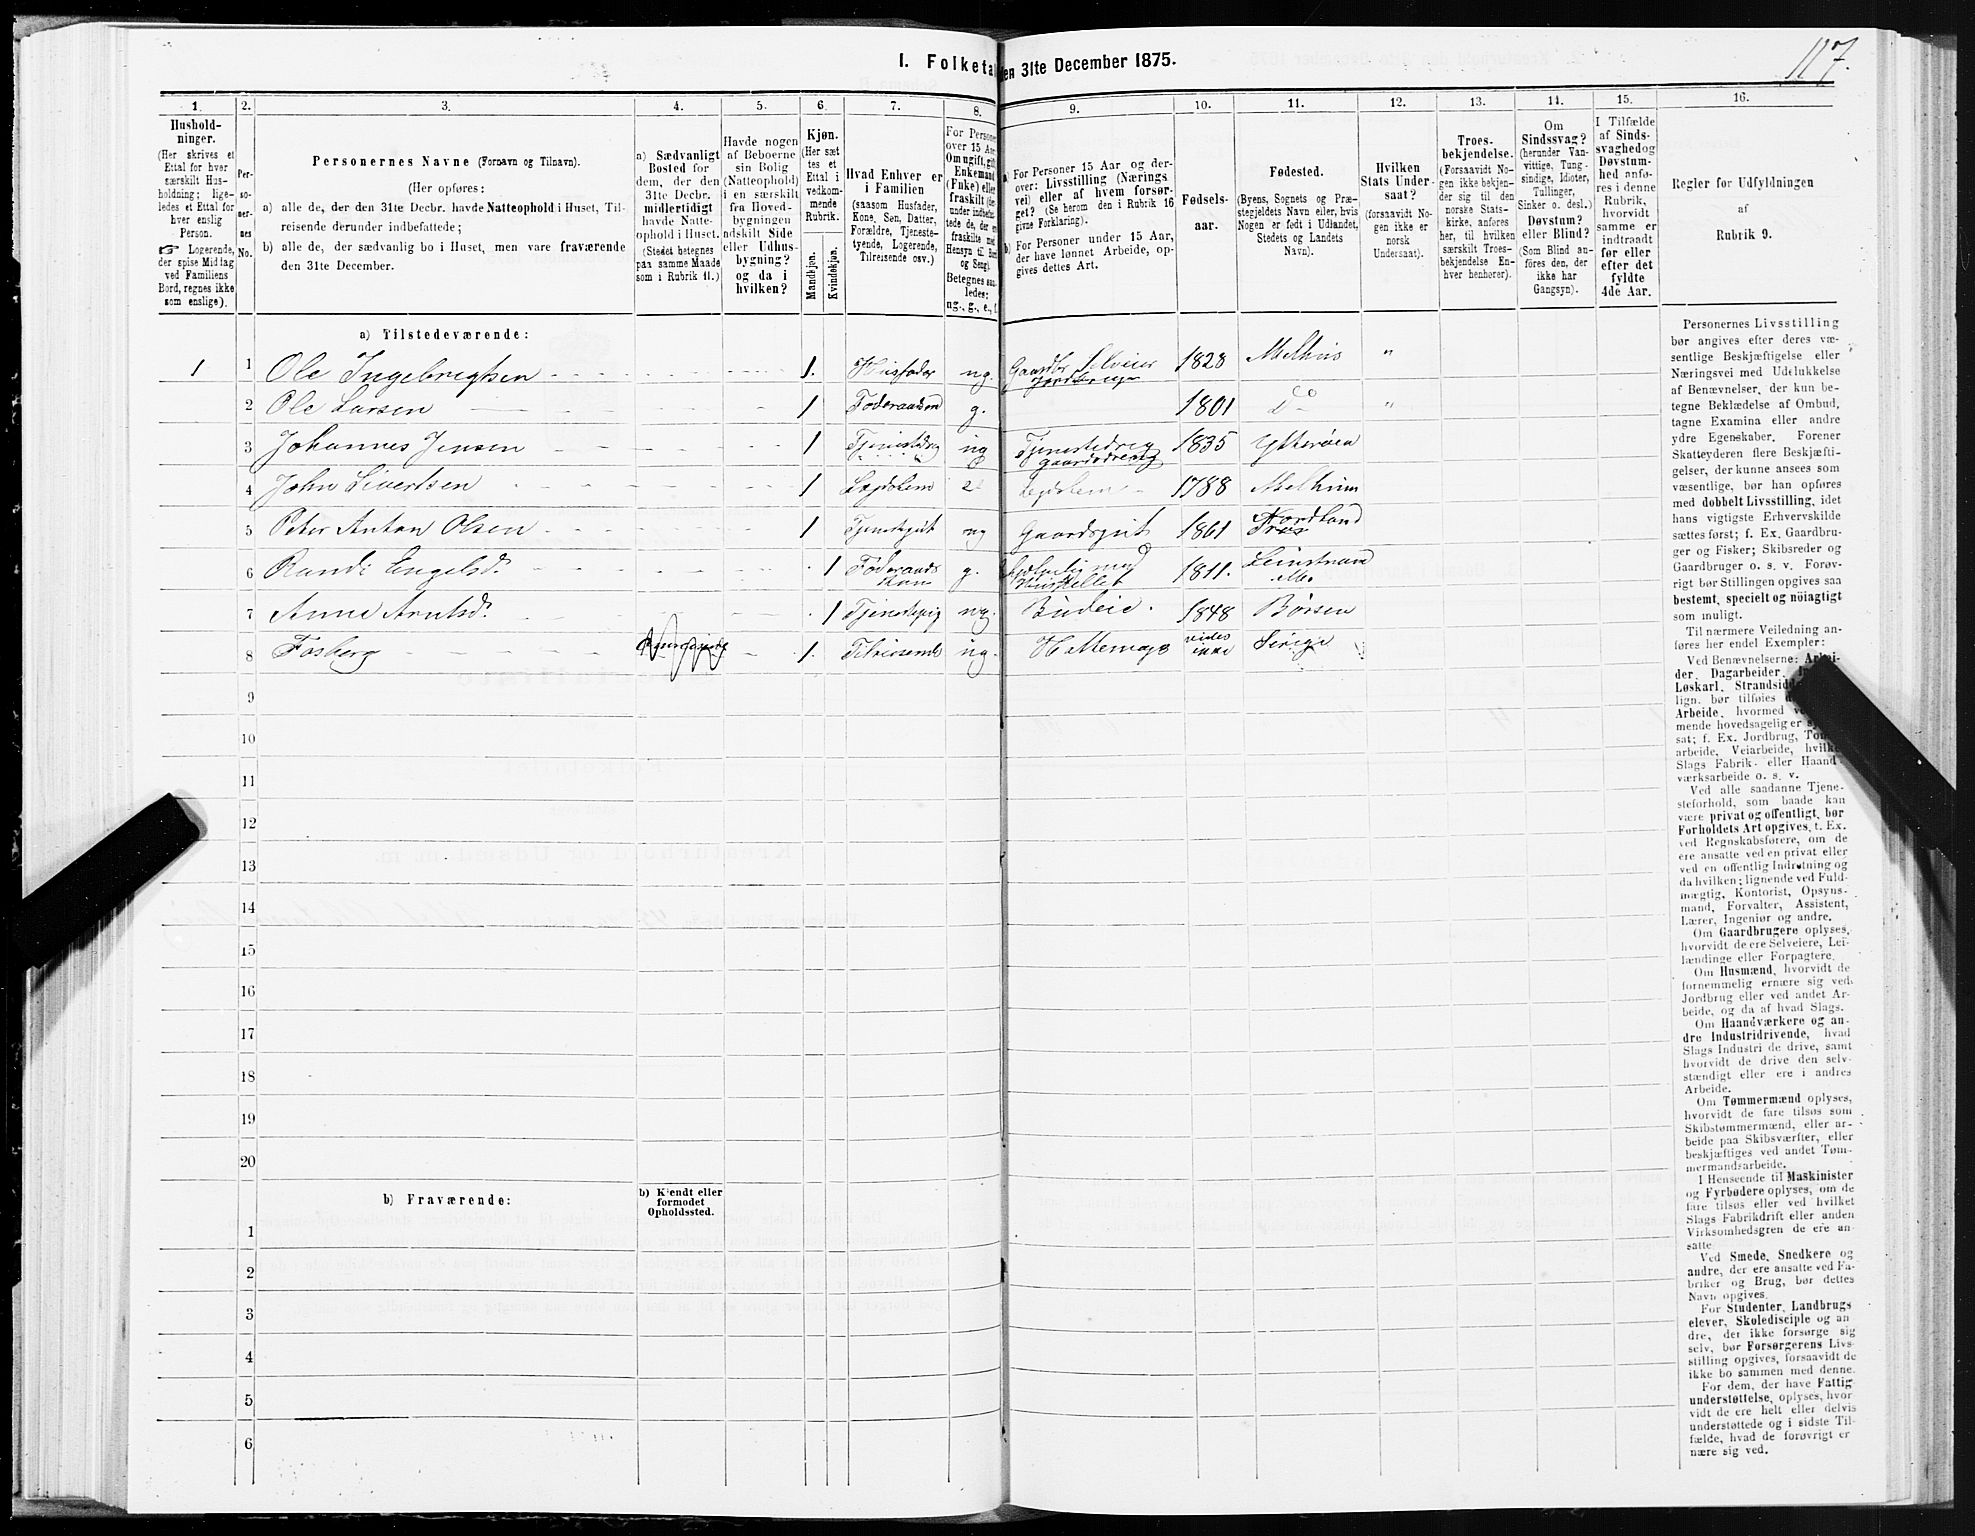 117.
I. Folketal
den 31te December 1875.
1. 2. 3. 4. 5. 6. 7. 8. 9. 10. 11. 12. 13. 14. 15. 16.
Hushold-
ninger.
(Her skrives et
Ettal for hver
særskilt Hus-
holdning; lige-
ledes et Ettal for
hver enslig
Person.
☞ Logerende,
der spise Middag
ved Familiens
Bord, regnes ikke
som enslige).
Per-
so-
ner-
nes
No.
Personernes Navne (Fornavn og Tilnavn).
(Her opføres:
a) alle de, der den 31te Decbr. havde Natteophold i Huset, Til-
reisende derunder indbefattede;
b) alle de, der sædvanlig bo i Huset, men vare fraværende
den 31te December.
a) Sædvanligt
Bosted for
dem, der den
31te Decbr.
midlertidigt
havde Natte-
ophold i Huset.
(Stedet betegnes
paa samme Maade
som i Rubrik 11.)
Havde nogen
af Beboerne
sin Bolig
(Natteophold)
i en særskilt
fra Hoved-
bygningen
adskilt Side
eller Udhus-
bygning?
og da i
hvilken?
Kjøn.
(Her sæt
tes et
Ettal i
vedkom-
mende
Rubrik.
Mandkjøn.
Kvindekjøn.
Hvad Enhver er
i Familien
(saasom Husfader,
Kone, Søn, Datter,
Forældre, Tjeneste-
tyende, Logerende,
Tilreisende osv.)
For Persone
over 15 Aar
Om ugift, gift
Enkemand
(Fuke) eller
fraskilt
Betegnes saa-
ledes:
ug., g., e., f.
a) For Personer 15 Aar og der-
over: Livsstilling (Nærings
vei) eller af hvem forsør-
get? (Se herom den i Rubrik 16
givne Forklaring).
b) For Personer under 15 Aar,
der have lønnet Arbeide, op-
gives dettes Art.
Fødsels-
aar.
Fødested.
(Byens, Sognets og Præ-
stegjeldets Navn eller, hvis
Nogen er født i Udlandet,
Stedets og Landets
Navn).
Hvilken
Stats Under-
saat?
(forsaavidt No-
gen ikke er
norsk
Undersaat).
Troes-
bekjendelse.
(Forsaavidt No-
gen ikke bekjen-
der sig til den
norske Stats-
kirke, anføres
her, til hvilken
særskilt Troes-
bekjendelse En-
hver henhører).
Om
Sindssvag?
(herunder Van-
vittige, Tung-
sindige, Idioter,
Tullinger,
Sinker o. desl.)
Døvstum?
eller Blind?
(Som Blind an-
føres den, der
ikke har
Gangsyn).
I Tilfælde
af Sinds-
svaghed og
Døvstum-
hed anfø-
res i denne
Rubrik,
hvorvidt
samme er
indtraadt
før eller
efter det
fyldte
4de Aar.
Regler for Udfyldningen
af
Rubrik 9.
a) Tilstedeværende:
1 1 Ole Ingebregtsen 1. Husfader ug. Gaardbr Selveier Jordbruger 1828 Melhus "
2 Ole Larsen 1 Føderaadsmd g. 1801 Do "
3 Johannes Jensen 1 Tjenestedrg ug Tjenestedreng gaardsdreng 1835 Ytterøen
4 John Sivertsen 1 Lægdslem e Legdslem 1788 Melhum
5 Peter Anton Olsen 1 Tjenstgut ug Gaardsgut 1861 Nordland
6 Randi Engelsd. 1 Føderaads Kone g. 1811. Leinstrand
7 Anne Arntsdr 1 Tjenestepig ug. Budeie. 1848 Børsen
8 Fosberg 1. Tilreisende ug. vides ikke Sverige
9
10
11
12
13
14
15
16
17
18
19
20
b) Fraværende:
b) Kjendt eller
formodet
Opholdssted.
1
2
3
4
5
6
Personernes Livsstilling
bør angives efter deres væ-
sentlige Beskjæftigelse eller
Næringsvei med Udelukkelse
af Benævnelser, der kun be-
tegne Beklædelse af Ombud,
tagne Examina eller andre
ydre Egenskaber. Forener
Skatteyderen flere Beskjæfti-
gelser, der kunne ansees som
væsentlige, bør han opføres
med dobbelt Livsstilling, idet
hans vigtigste Erhvervskilde
sættes først; f. Ex. Gaardbru-
ger og Fisker; Skibsreder og
Gaardbruger o. s. v. Forøv-
rigt bør Stillingen opgives saa
bestemt, specielt og nöiagtigt
som muligt.
Til nærmere Veiledning an-
føres her endel Exempler:
Ved Benævnelserne: Arbei-
der, Dagarbeider,
Løskarl, Strandsidder
lign. bør tilføies
Arbeide, hvormed
mende hovedsagelig er
sat; f. Ex. Jordbrug,
arbeide, Veiarbeide, hvilke
Slags Fabrik- eller Haand-
værksarbeide o. s. v.
Ved alle saadanne Tjene-
steforhold, som baade kan
være privat og offentligt, bør
Forholdets Art opgives, t. Ex.
ved Regnskabsførere, om de
ere ansatte ved en privat eller
ved en offentlig Indretning og
da hvilken; lignende ved Fuld-
mægtig, Kontorist, Opsyns-
mand, Forvalter, Assistent,
Lærer, Ingeniør og andre.
Om Gaardbrugere oplyses,
hvorvidt de ere Selveiere, Lei-
lændinge eller Forpagtere.
Om Husmænd, hvorvidt de
fornemmelig ernære sig ved
Jordbrug eller ved andet Ar-
beide, og da af hvad Slags.
Om Haandværkere og an-
dre Industridrivende, hvad
Slags Industri de drive, samt
hvorvidt de drive den selv-
stændigt eller ere i andres
Arbeide.
Om Tømmermænd oplyses,
hvorvidt de fare tilsøs som
Skibstømmermænd, eller ar-
beide paa Skibsværfter, eller
beskjæftiges ved andet Tøm-
mermandsarbeide.
I Henseende til Maskinister
og Fyrbødere oplyses, om de
fare tilsøs eller ved hvilket
Slags Fabrikdrift eller anden
Virksomhedsgren de ere an-
satte.
Ved Smede, Snedkere og
andre, der ere ansatte ved Fa-
briker og Brug, bør dettes
Navn opgives.
For Studenter, Landbrugs
elever, Skoledisciple og an
dre, der ikke forsørge sig
selv, bør Forsørgerens Livs-
stilling opgives, forsaavidt de
ikke bo sammen med denne.
For dem, der have Fattig
understøttelse, oplyses, hvor
vidt de ere helt eller delvis
understøttede og i sidste Til-
fælde, hvad de forøvrigt er
nære sig ved.